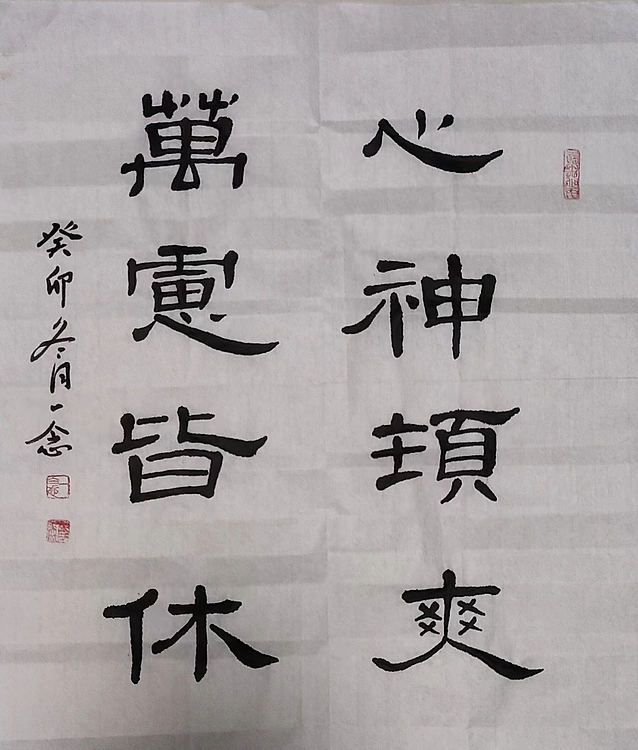 心神頓爽
萬慮皆休
癸卯冬月一念